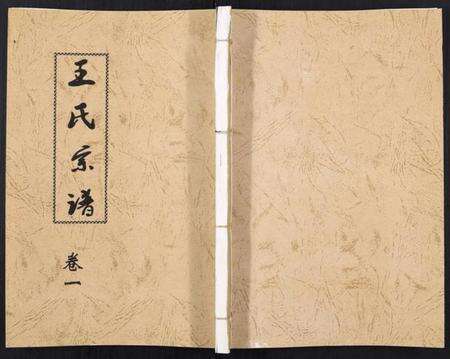 王氏宗谱
卷一